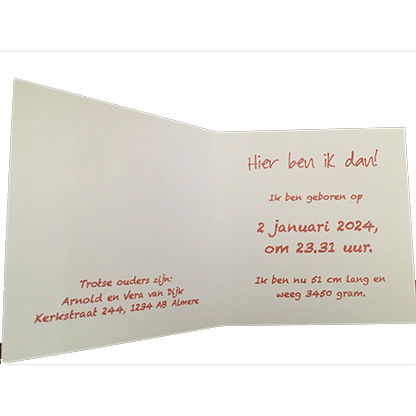 Trotse ouders zijn:
Arnold en Vera van Dijk
Kerkstraat 244, 1234 AB Almere
Hier ben ik dan!
Ik ben geboren op
2 januari 2024,
om 23.31 uur.
Ik ben nu 51 cm lang en
weeg 3450 gram.